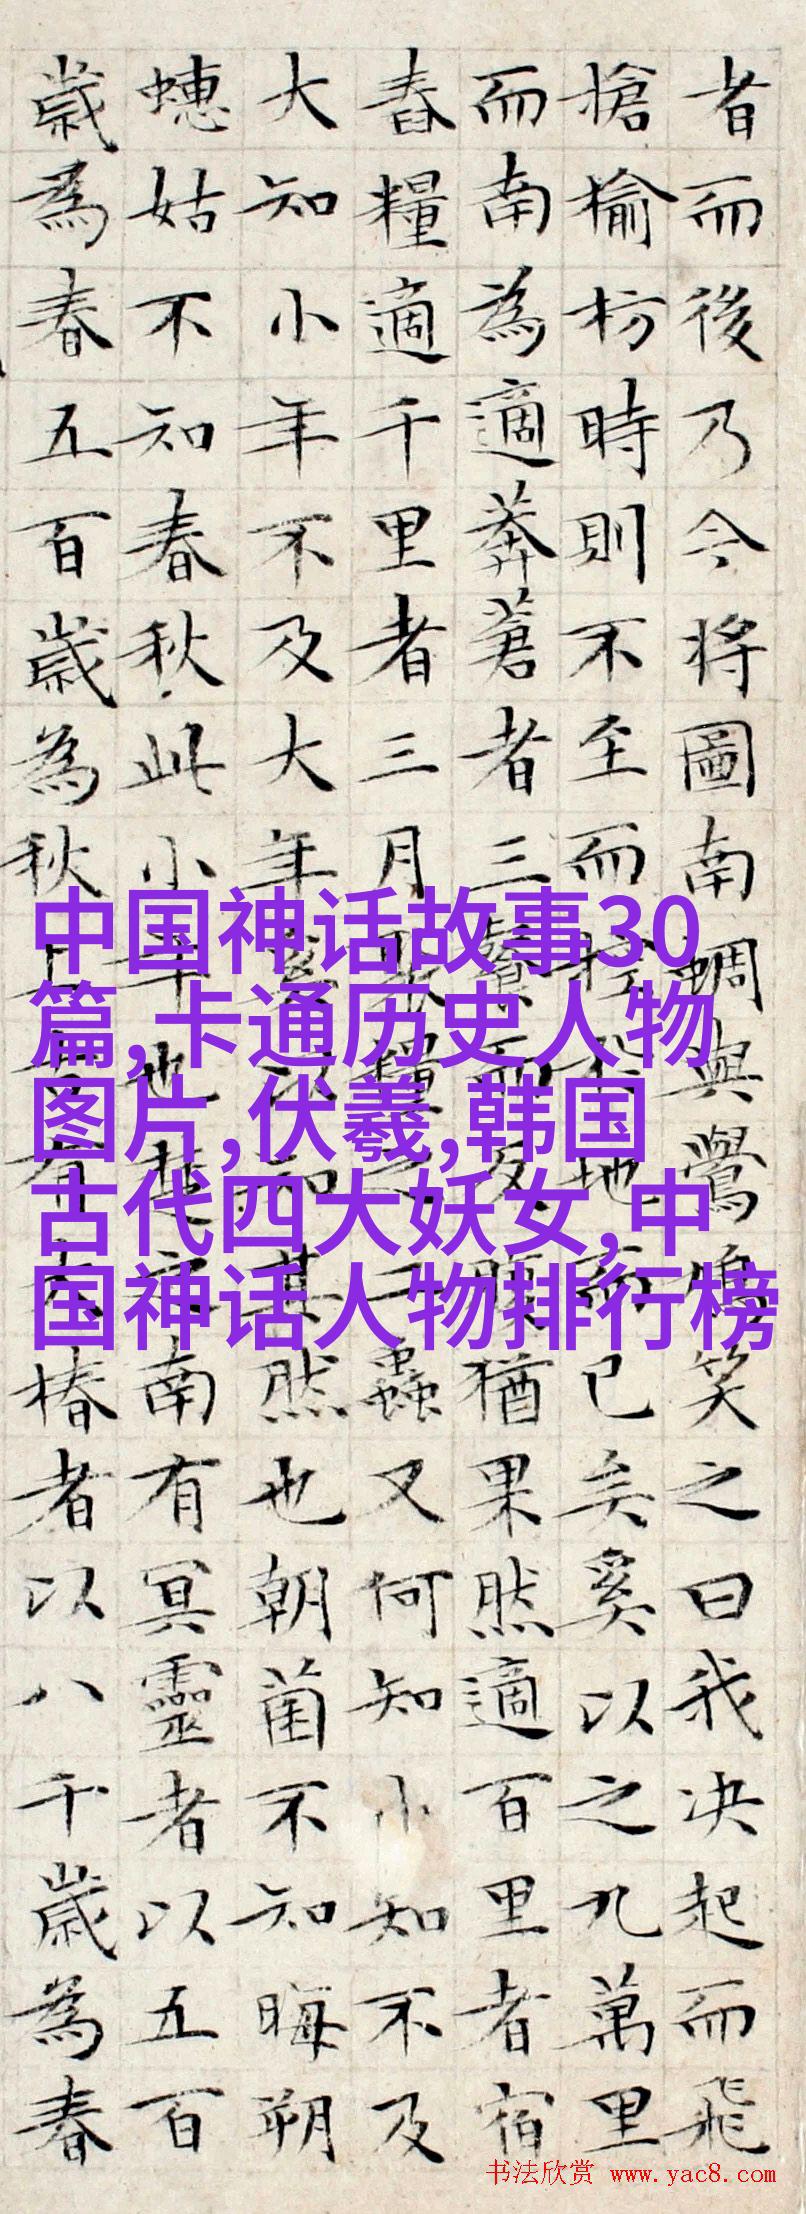 者而後乃今將圖南蜩與鷽鳩笑之曰我决起而飛
搶榆枋時則不至而控於地而已矣奚以之九萬里
而南為適莽蒼者三飡而反腹猶果然適百里者宿
舂糧適千里者三月聚糧之二蟲又何知小知不及
大知小年不及大年奚以知其然也朝菌不知晦朔
蟪姑不知春秋此小年也楚之南有冥靈者以五百
歲為春五百歲為秋上古有大椿者以八千歲為春
中国神话故事30
篇,卡通历史人物
图片,伏羲,韩国
古代四大妖女,中
国神话人物排行榜
书法欣赏 www.yac8.com